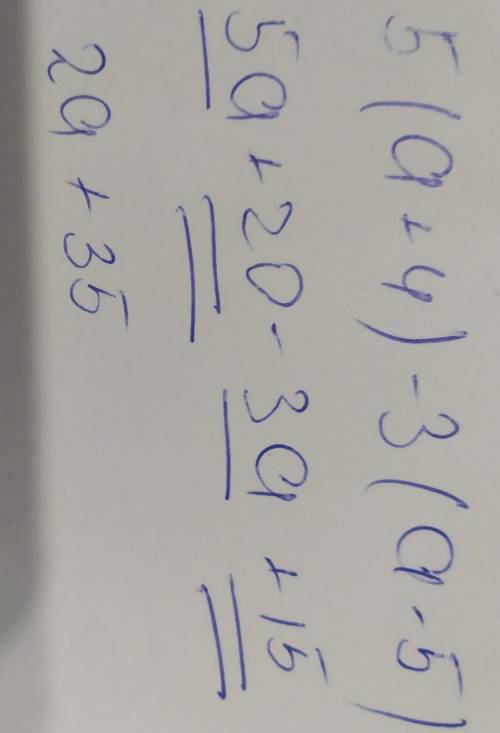 5(a+4)-3(a-5)
5a+20-3a+15
2a+35